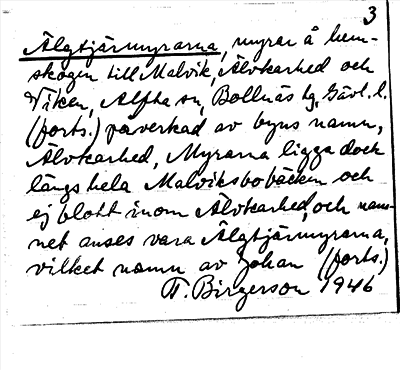 3
Älgtjärnmyrarna, myrar å hem-
skogen till Malvik, Älvkarhed och
Viken, Alfta sn, Bollnäs tg, Gävl. l.
(forts.) påverkad av byns namn,
Älvkarhed, Myrarna ligga dock
längs hela Malviksbobäcken och
ej blott inom Älvkarhed, och nam-
net anses vara Älgtjärnmyrarna,
vilket namn av Johan (forts.)
F. Birgerson 1946